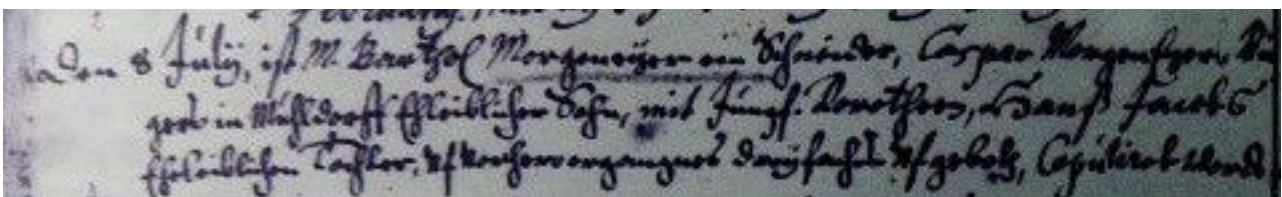 den 8 Julij, ist M. Barthol Morgeneyer ein Schneider, Casper Morgeneyers
gers in Mühldorff Ehleiblicher Sohn, mit Jungf. Dorotheen, Hanß Jacobs
Ehleiblichen Tochter, vf vorhervorgangnes dreyfachs vfgeboth, Copuliret worde